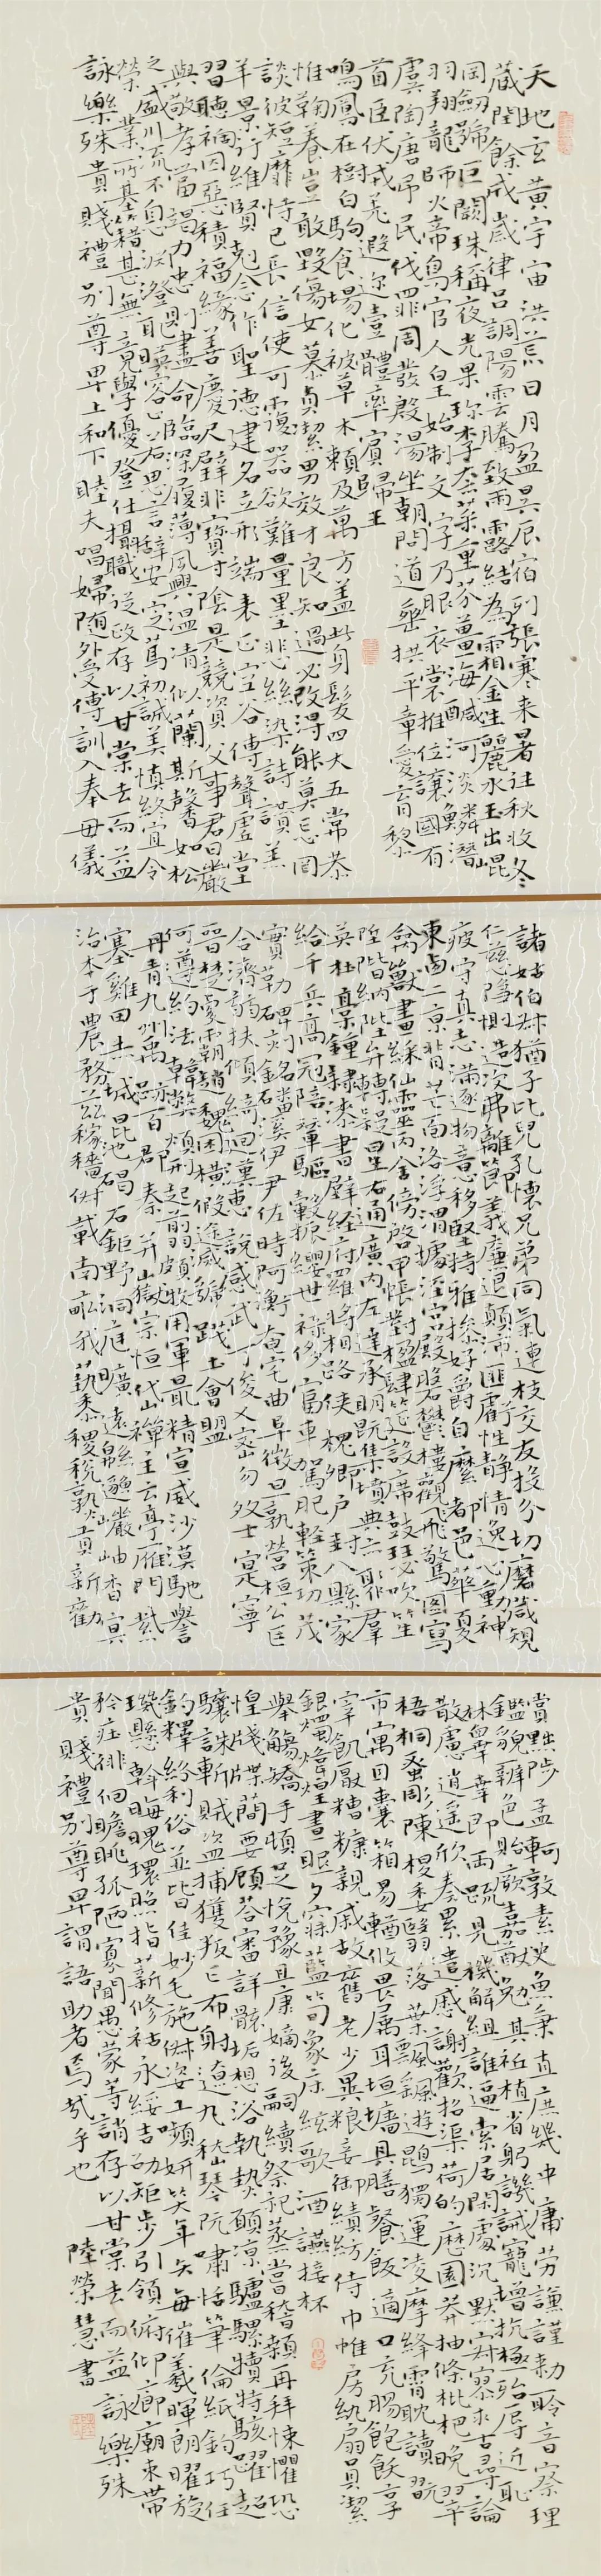 天地玄黃宇宙洪荒日月盈昃辰宿列張寒来暑往秋收冬
藏閏餘成歲律吕調陽雲騰致雨露結為霜金生麗水玉出崐
岡劒號巨闕珠稱夜光果珎李柰菜重芥薑海醎河淡鱗潛
羽翔龍師火帝鳥官人皇始制文字乃服衣裳推位讓國有
虞陶唐弔民伐罪周發殷湯坐朝問道垂拱平章愛育黎
首臣伏戎羌遐迩壹體率賓歸王
鳴鳳在樹白駒食場化被草木賴及萬方盖此身髮四大五常恭
惟鞠養豈敢毀傷女慕貞潔男效才良知過必改得能莫忘罔
談彼短靡恃己長信使可覆器欲難量墨悲絲染詩讚羔
羊景行維賢剋念作聖德建名立形端表正空谷傳聲虛堂
習聽禍因惡積福緣善慶尺璧非寶寸陰是競資父事君曰嚴
與敬孝當竭力忠則盡命臨深履薄夙興溫凊似蘭斯馨如松
之盛川流不息淵澄取暎容止若思言辭安定篤初誠美慎終宜令
榮業所基籍甚無竟學優登仕攝職從政存以甘棠去而益
詠樂殊貴賤禮别尊卑上和下睦夫唱婦随外受傅訓入奉母儀
諸姑伯叔猶子比兒孔懷兄弟同氣連枝交友投分切磨箴規
仁慈隱惻造次弗離節義廉退顛沛匪虧性静情逸心動神
疲守真志滿逐物意移堅持雅操好爵自縻都邑華夏
東西二京背芒面洛浮渭據涇宮殿盤鬱樓觀飛驚圖寫
禽獸畫綵仙靈丙舍傍啓甲帳對楹肆筵設席鼓瑟吹笙
陞階納陛弁轉疑星右通廣内左達承明既集墳典亦聚群
英杜稾鍾隸漆書壁經府羅將相路俠槐卿户封八縣家
給千兵高冠陪輦驅轂振纓世祿侈富車駕肥輕策功茂
實勒碑刻銘磻溪伊尹佐時阿衡奄宅曲阜微旦孰營桓公匡
合濟弱扶傾綺回漢惠說感武丁俊乂密勿多士寔寧
晉楚更霸趙魏困橫假途滅虢踐土會盟
何遵約法韓弊煩刑起翦頗牧用軍最精宣威沙漠馳譽
丹青九州禹跡百郡秦并嶽宗恒岱禪主云亭雁門紫
塞雞田赤城昆池碣石鉅野洞庭曠遠緜邈巖岫杳冥
治本于農務茲稼穡俶載南畝我藝黍稷稅孰貢新勸
賞黜陟孟軻敦素史魚秉直庶幾中庸勞謙謹勅聆音察理
鑑貌辨色貽厥嘉猷勉其祗植省躬譏誡寵增抗極殆辱近恥
林皋幸即兩疏見機解組誰逼索居閑處沉默寂寥求古尋論
散慮逍遥欣奏累遣慼謝歡招渠荷的歷園莽抽條枇杷晚翠
梧桐蚤彫陳根委翳落葉飄颻遊鵾獨運凌摩絳霄耽讀翫
市寓目囊箱易輶攸畏属耳垣墻具膳餐飯適口充腸飽飫享
宰飢厭糟糠親戚故舊老少異粮妾御績紡侍巾帷房紈扇員潔
銀燭煒煌晝眠夕寐藍筍象床絃歌酒讌接杯
舉觴矯手頓足悦豫且康嫡後嗣續祭祀蒸嘗稽顙再拜悚懼恐
惶牋牒簡要顧答審詳骸垢想浴執熱願涼驢騾犢特駭躍超
驤誅斬賊盜捕獲叛亡布射遼丸嵇琴阮嘯恬筆倫紙鈞巧任
釣釋紛利俗並皆佳妙毛施俶姿工嚬妍笑年矢每催羲暉朗曜旋
璣懸斡晦魄環照指薪修祜永綏吉劭矩步引領俯仰廊廟束帶
矜莊徘徊瞻眺孤陋寡聞愚蒙等誚存以甘棠去而益詠樂殊
貴賤禮别尊卑謂語助者焉哉乎也 陸榮慧書